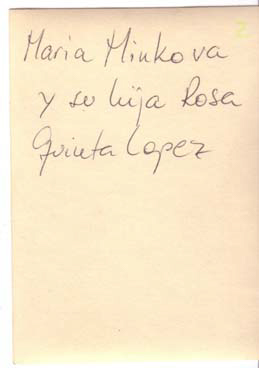 2
Maria Minkova
y su hija Rosa
Quinta Lopez